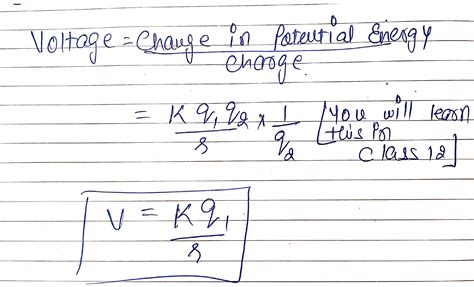 Voltage = Change in Potential Energy
charge
= K q1 q2 × 1 [you will learn
r q2 this in
class 12]
V = K q1
r